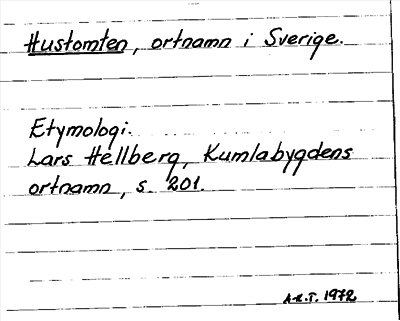 Hustomten, ortnamn i Sverige.
Etymologi.
Lars Hellberg, Kumlabygdens
ortnamn, s. 201.
A-R.T. 1972